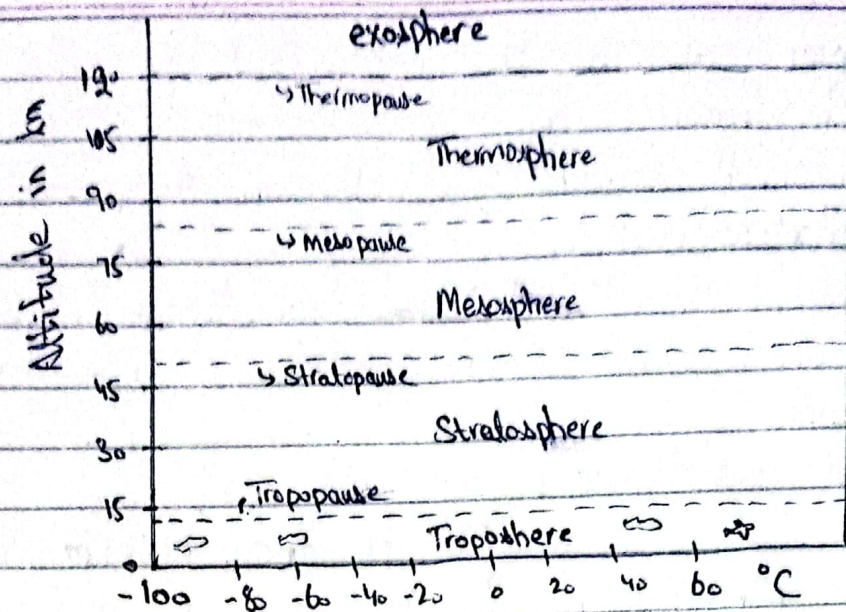 exosphere
120
↳ Thermopause
105
Thermosphere
90
↳ Mesopause
75
Mesosphere
60
↳ Stratopause
45
Stratosphere
30
Tropopause
15
Troposhere
0
-100 -80 -60 -40 -20 0 20 40 60 °C
Altitude in km